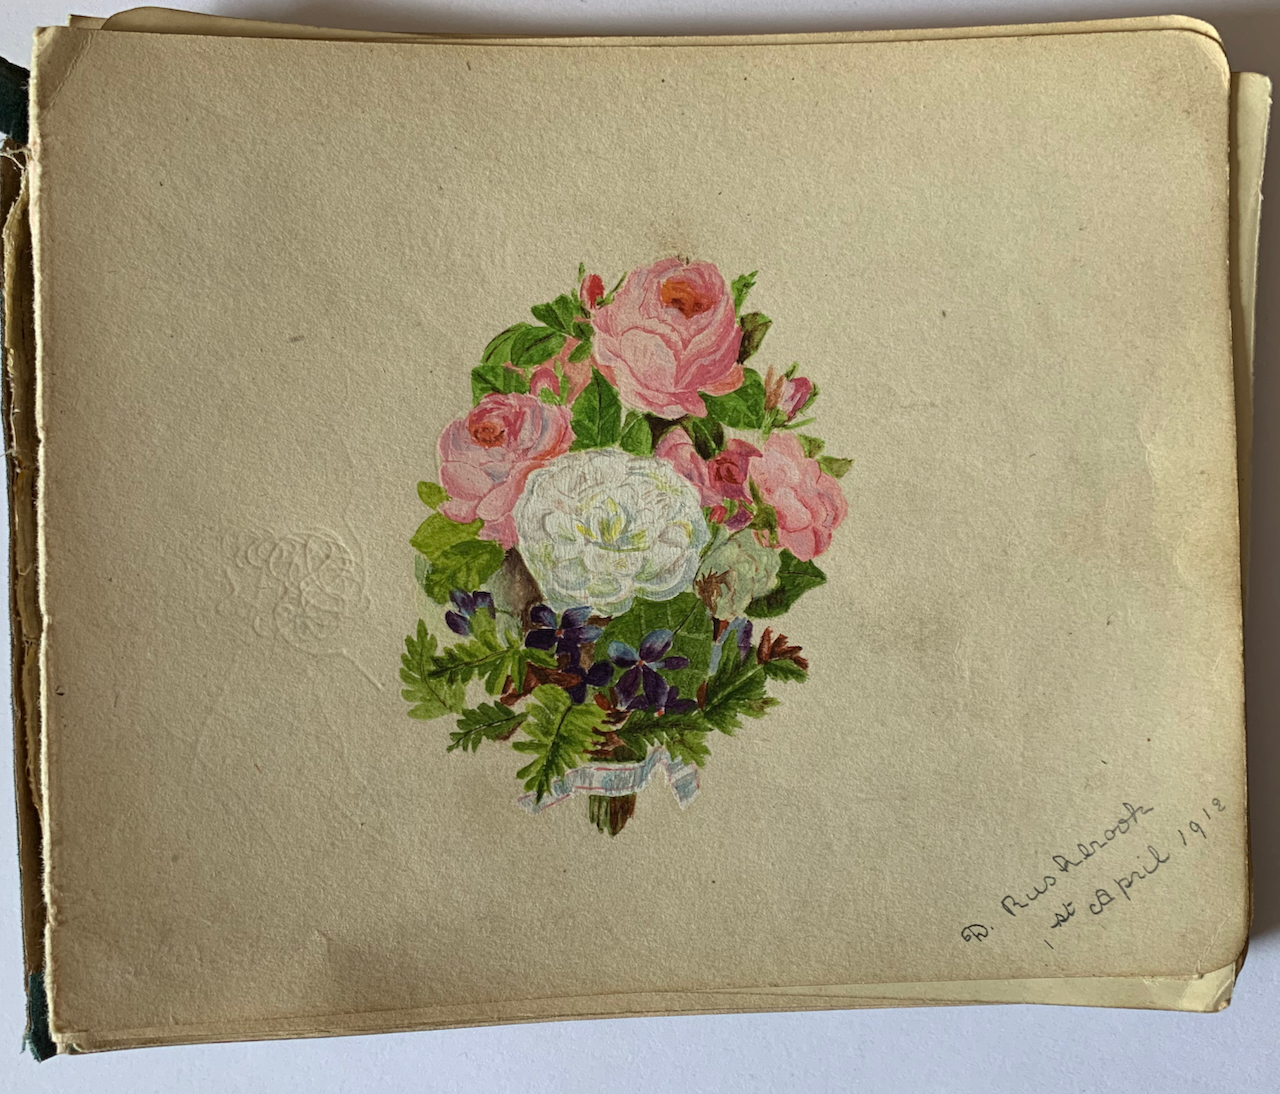 D. Rushbrook
1st April 1912